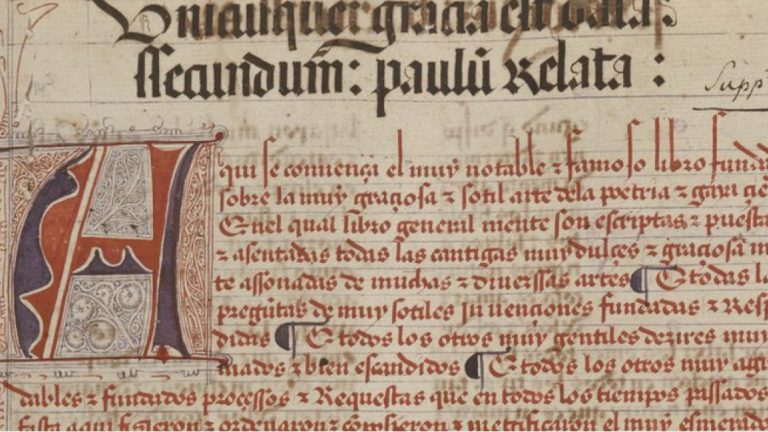 Vnicuiqueȝ gracia est data:
ssecundum: paulũ Relata:
Supp
Aqui se comiença el muy notable ⁊ famoso libro funda
sobre la muy graçiosa ⁊ sotil arte dela poetria ⁊ gaya çie
Enel qual libro general mente son escriptas ⁊ puesta
⁊ asentadas todas las cantigas muy dulces ⁊ graçiosa m
te assonadas de muchas ⁊ diuerssas artes ¶ E todas la
pregũtas de muy sotiles jnuençiones fundadas ⁊ Resp
didas ¶ E todos los otros muy gentiles dezires muy
mados ⁊ bien escandidos ¶ E todos los otros muy agra
dables ⁊ fundados proçessos ⁊ Requestas que en todos los tiempos passados
fasta aqui fisieron ⁊ ordenaron ⁊ conposieron ⁊ metrificaron el muy esmerado